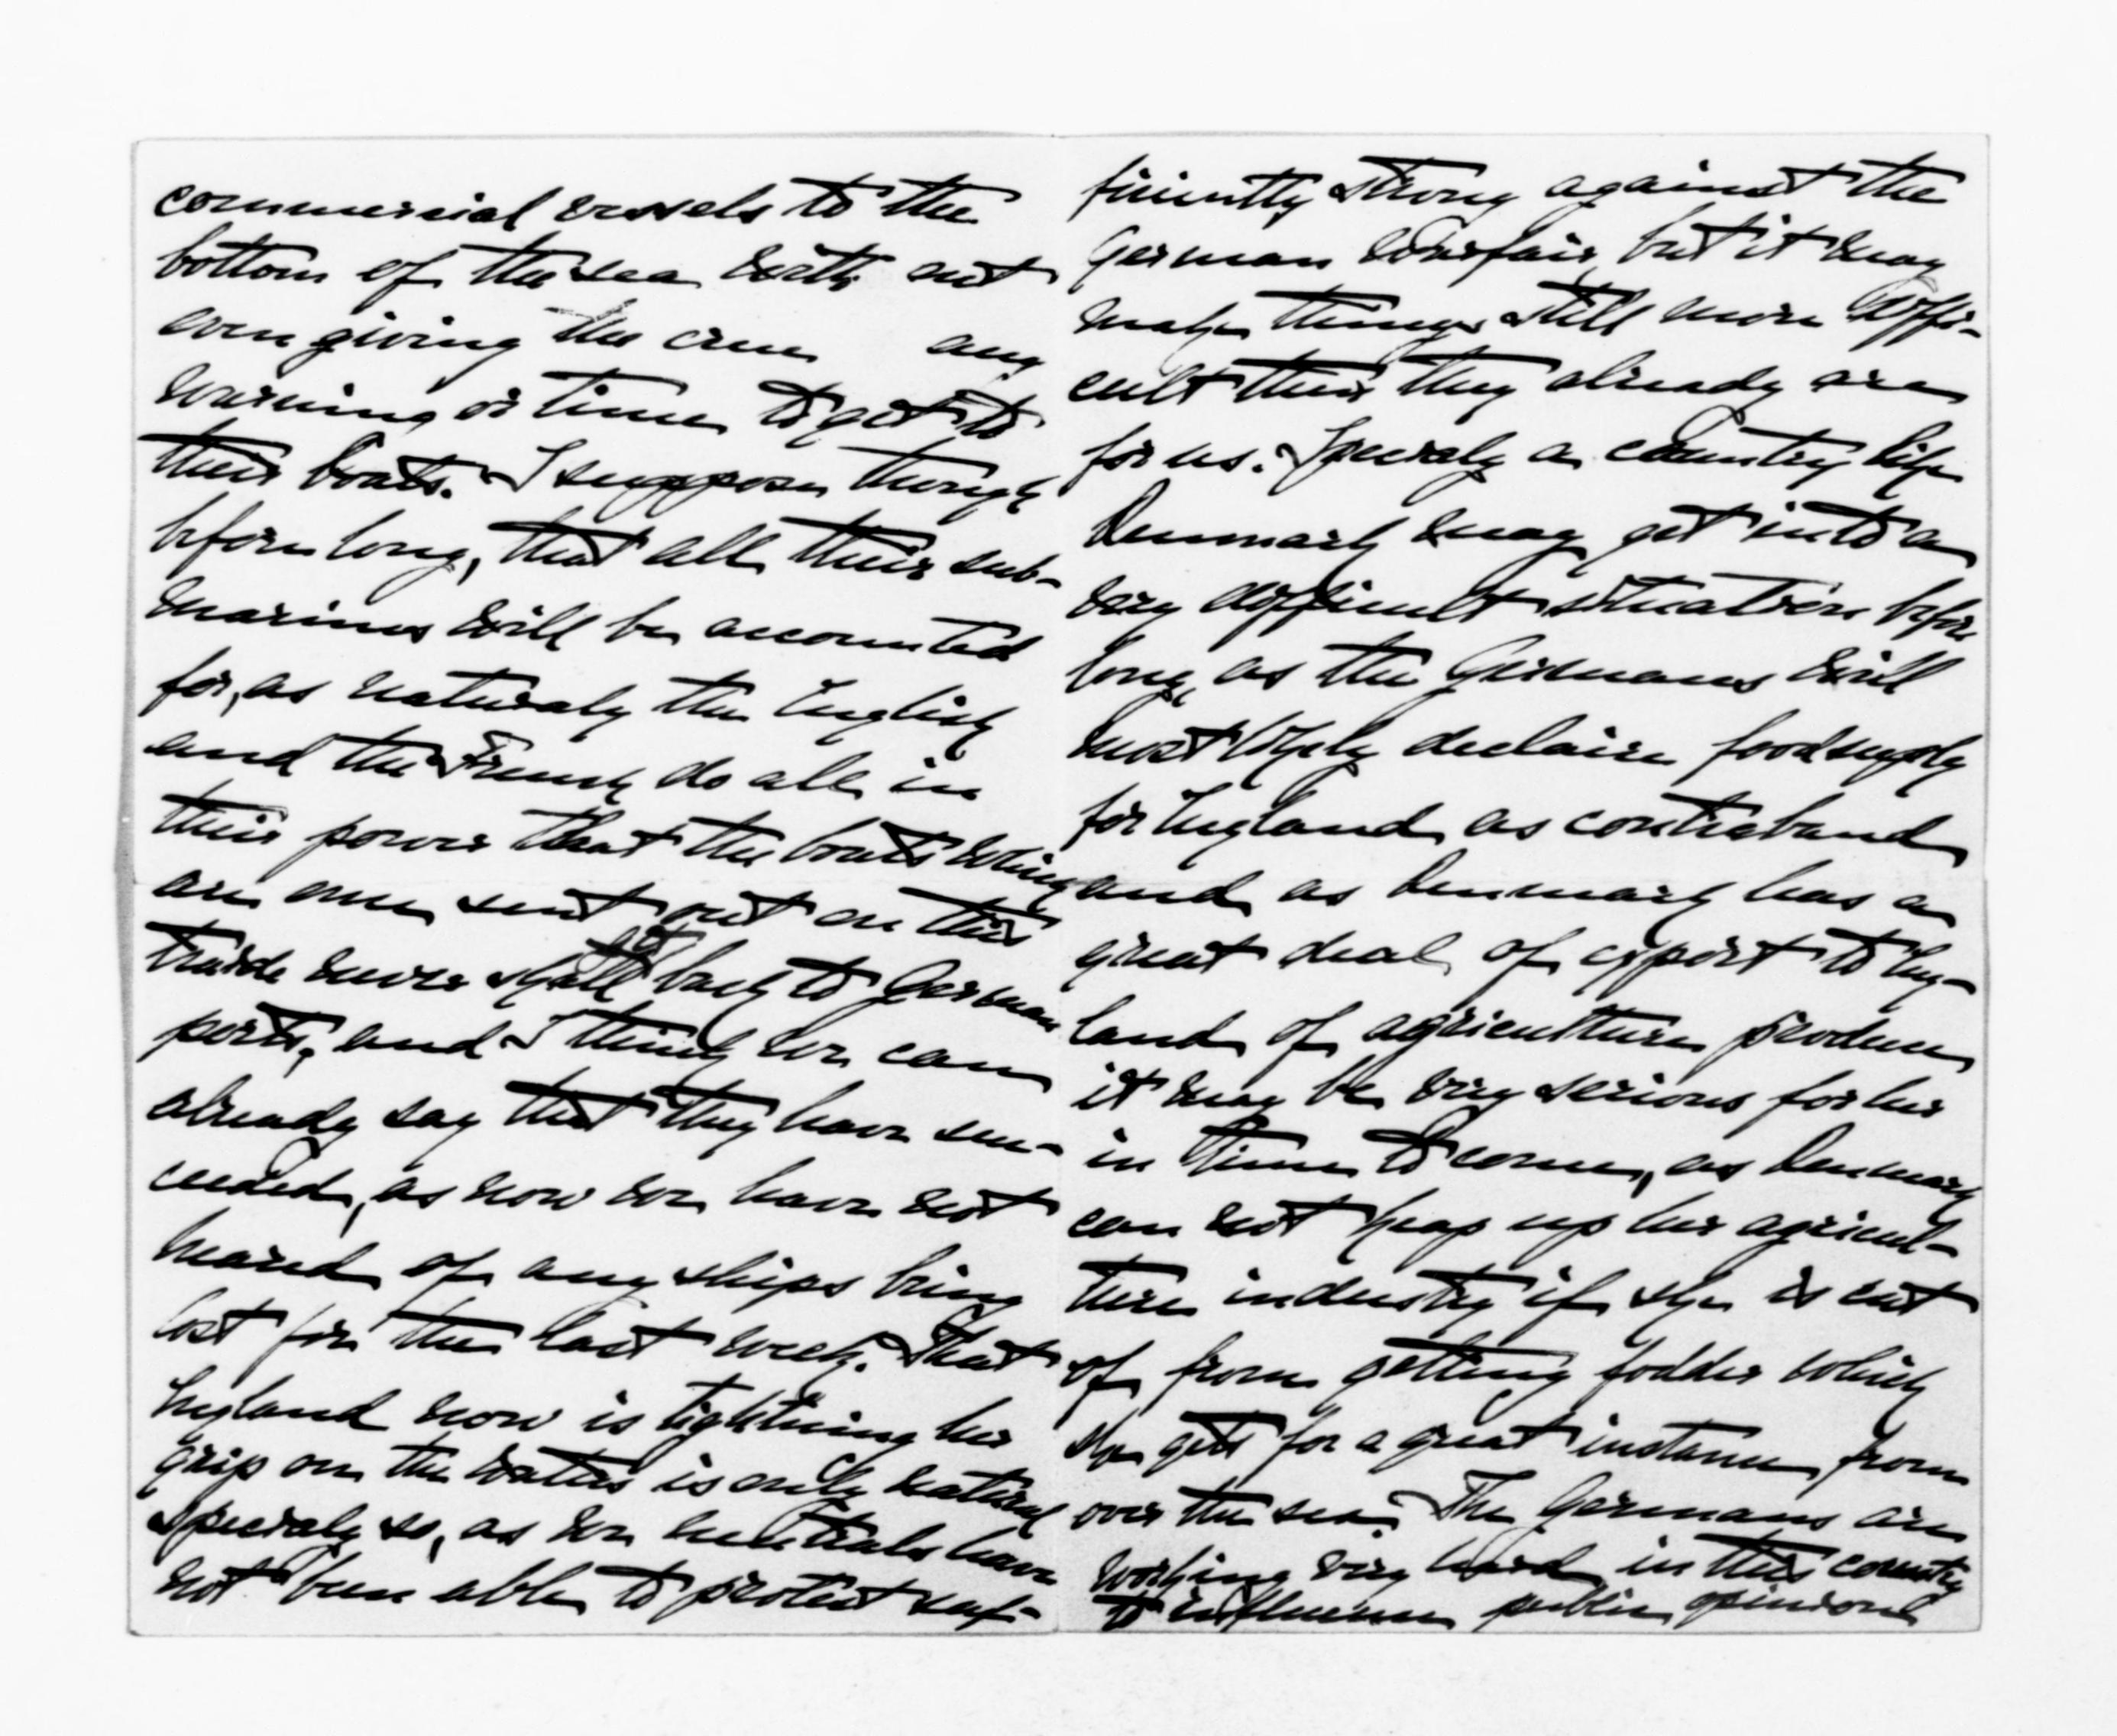 commercial vessels to the
bottom of the sea with out
even giving the crew any
warning or time to get to
their boats. I suppose though
before long, that all their sub-
marines will be accounted
for, as naturaly the English
and the French do all in
their power that the boats which
are once sent out on this
get
never shall back to German
ports, and I think we can
already say that they have suc-
ceeded, as now we have not
heard of any ships being
lost for the last week. That
England now is tightning her
grip on the waters is only natural
specialy so, as we neutrals have
not been able to protest suf-
ficiently strong against the
German warfair, but it may
make things still more diffi-
cult then they already are
for us. Specialy a country like
Denmark may get into a
very difficult situation before
long, as the Germans will
most likely declaire foodsupply
for England as contraband
and as Denmark has a
great deal of export to Eng-
land of agriculture produce
it may be very serious for her
in time to come, as Denmark
can not keap up her agricul-
ture industry if she is cut
of from getting fodder which
she gets for a great instance from
over the sea. The Germans are
working very hard in this country
to influence public opinion